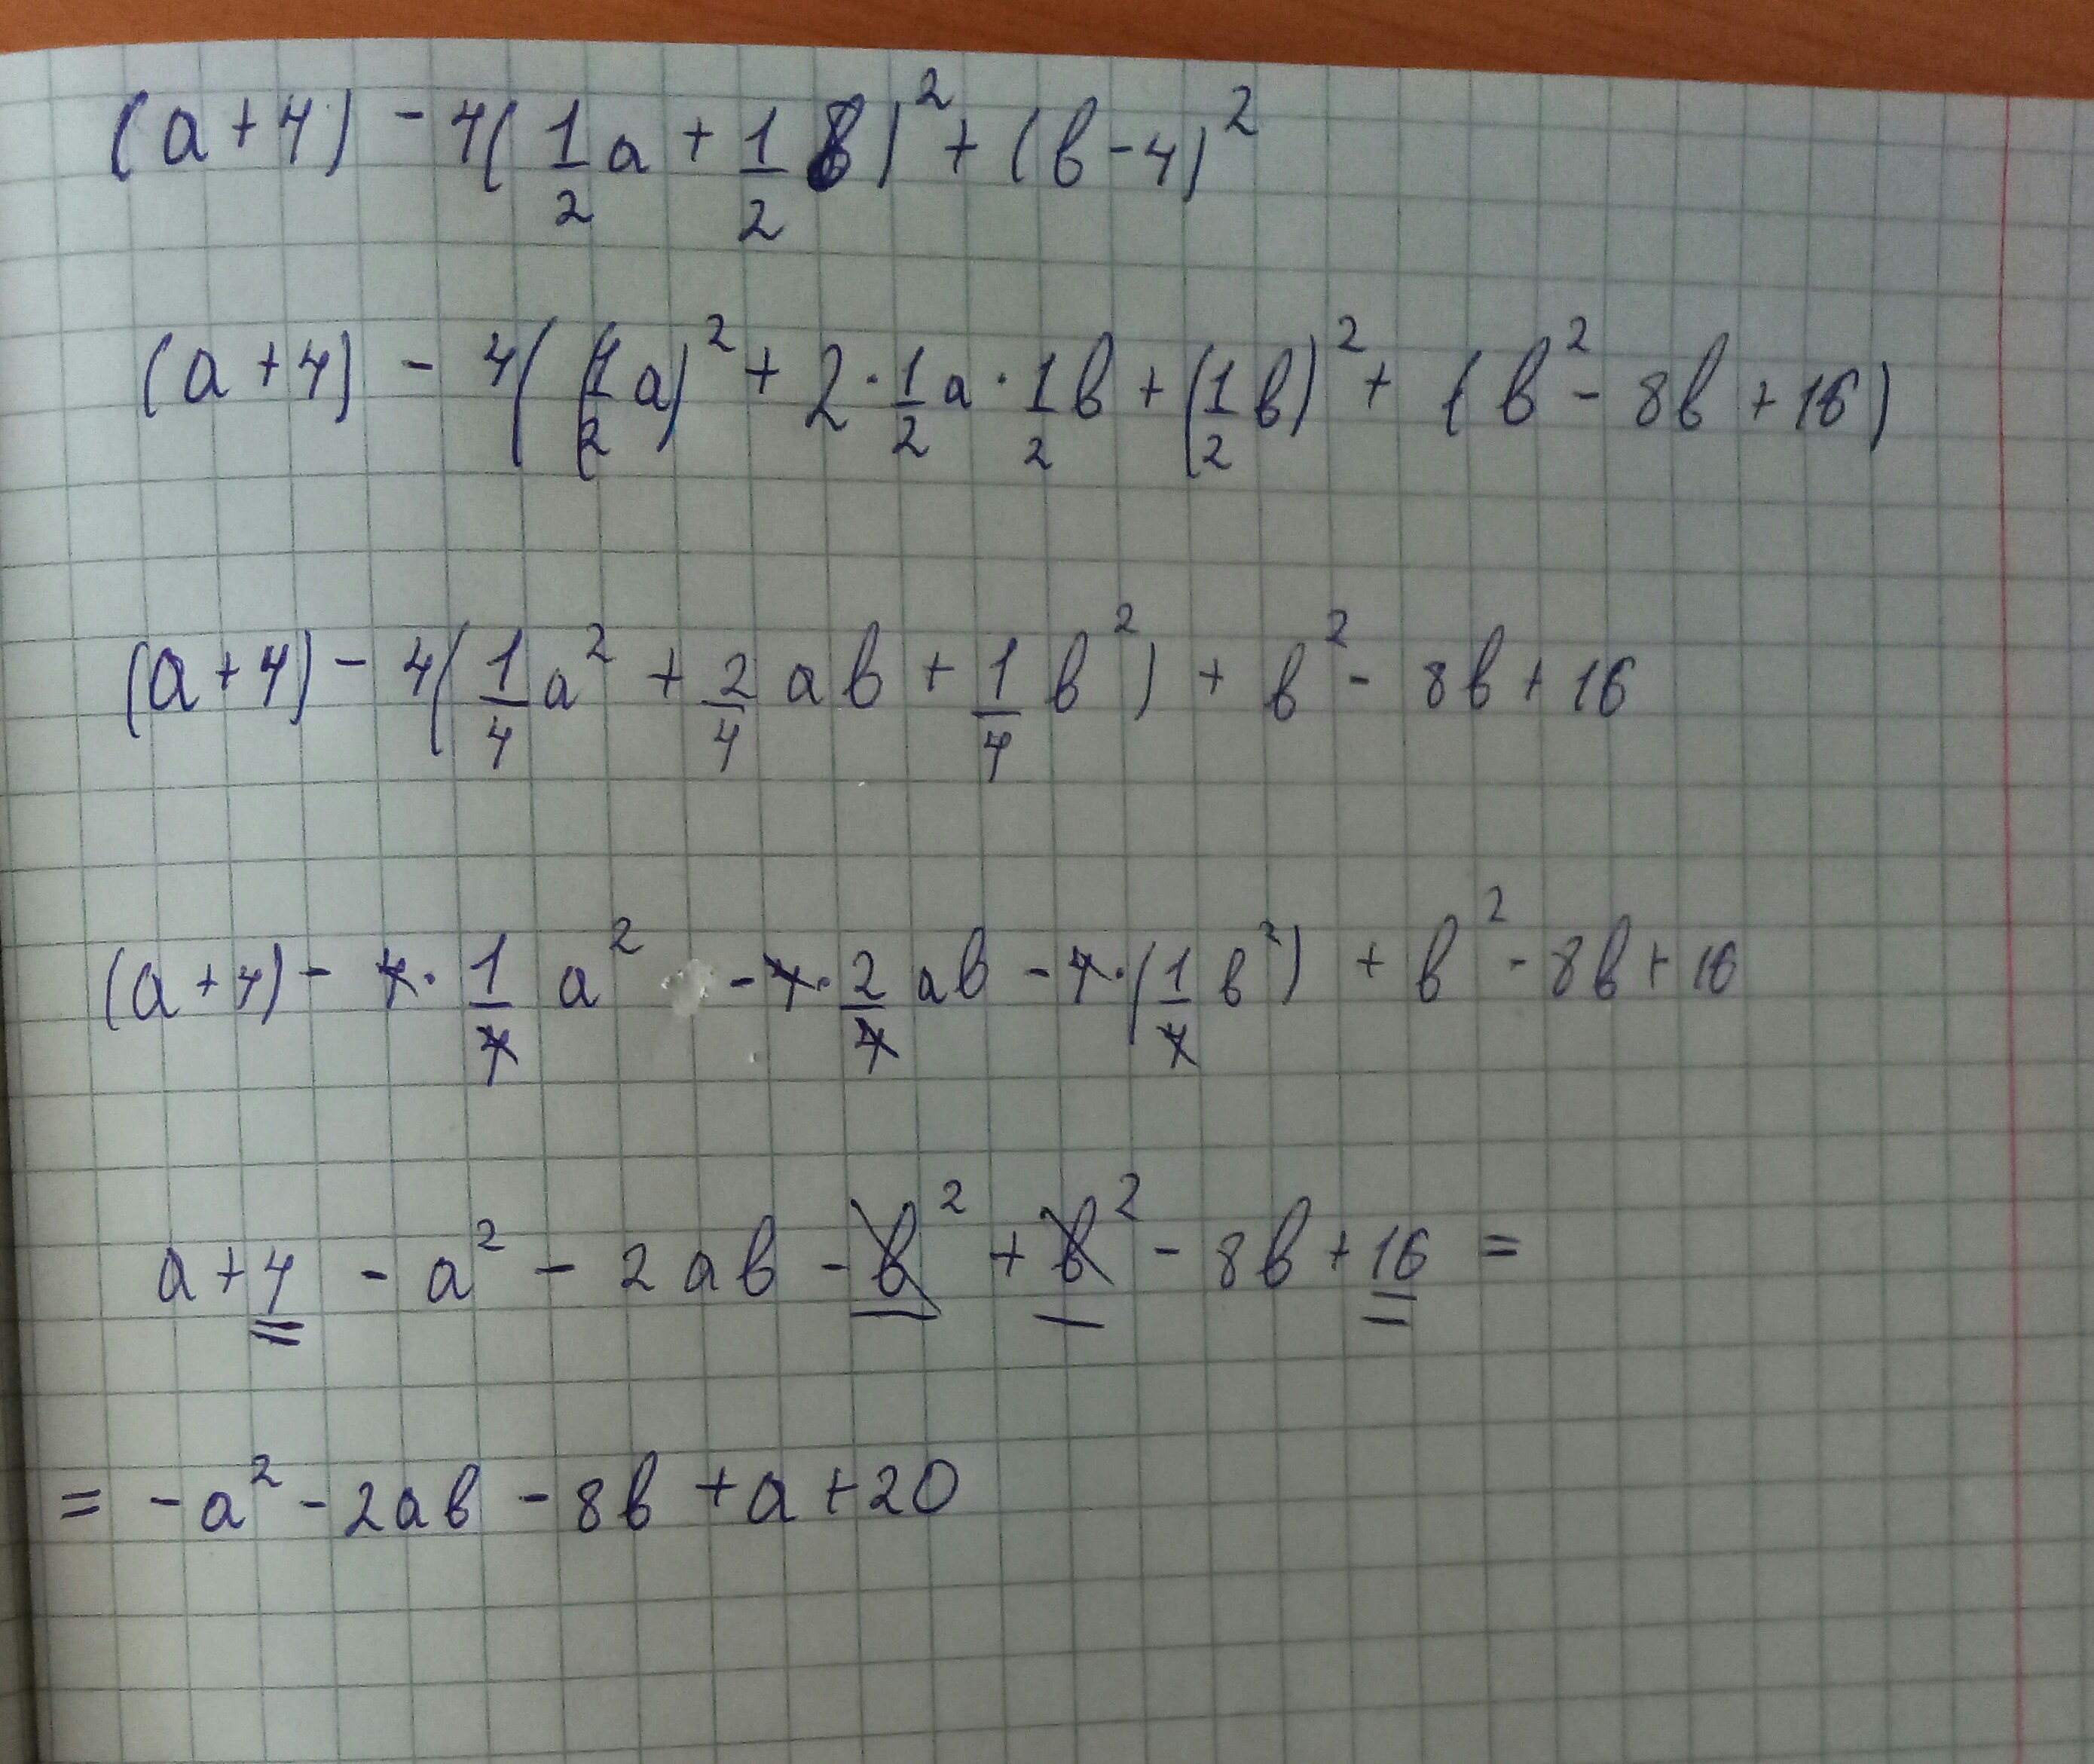 (a+4) - 4(1/2 a + 1/2 b)² + (b-4)²
(a+4) - 4((1/2 a)² + 2·1/2 a·1/2 b + (1/2 b)² + (b² - 8b + 16)
(a+4) - 4(1/4 a² + 2/4 ab + 1/4 b²) + b² - 8b + 16
(a+4) - 4·1/4 a² - 4·2/4 ab - 4·(1/4 b²) + b² - 8b + 16
a + 4 - a² - 2ab - b² + b² - 8b + 16 =
= -a² - 2ab - 8b + a + 20